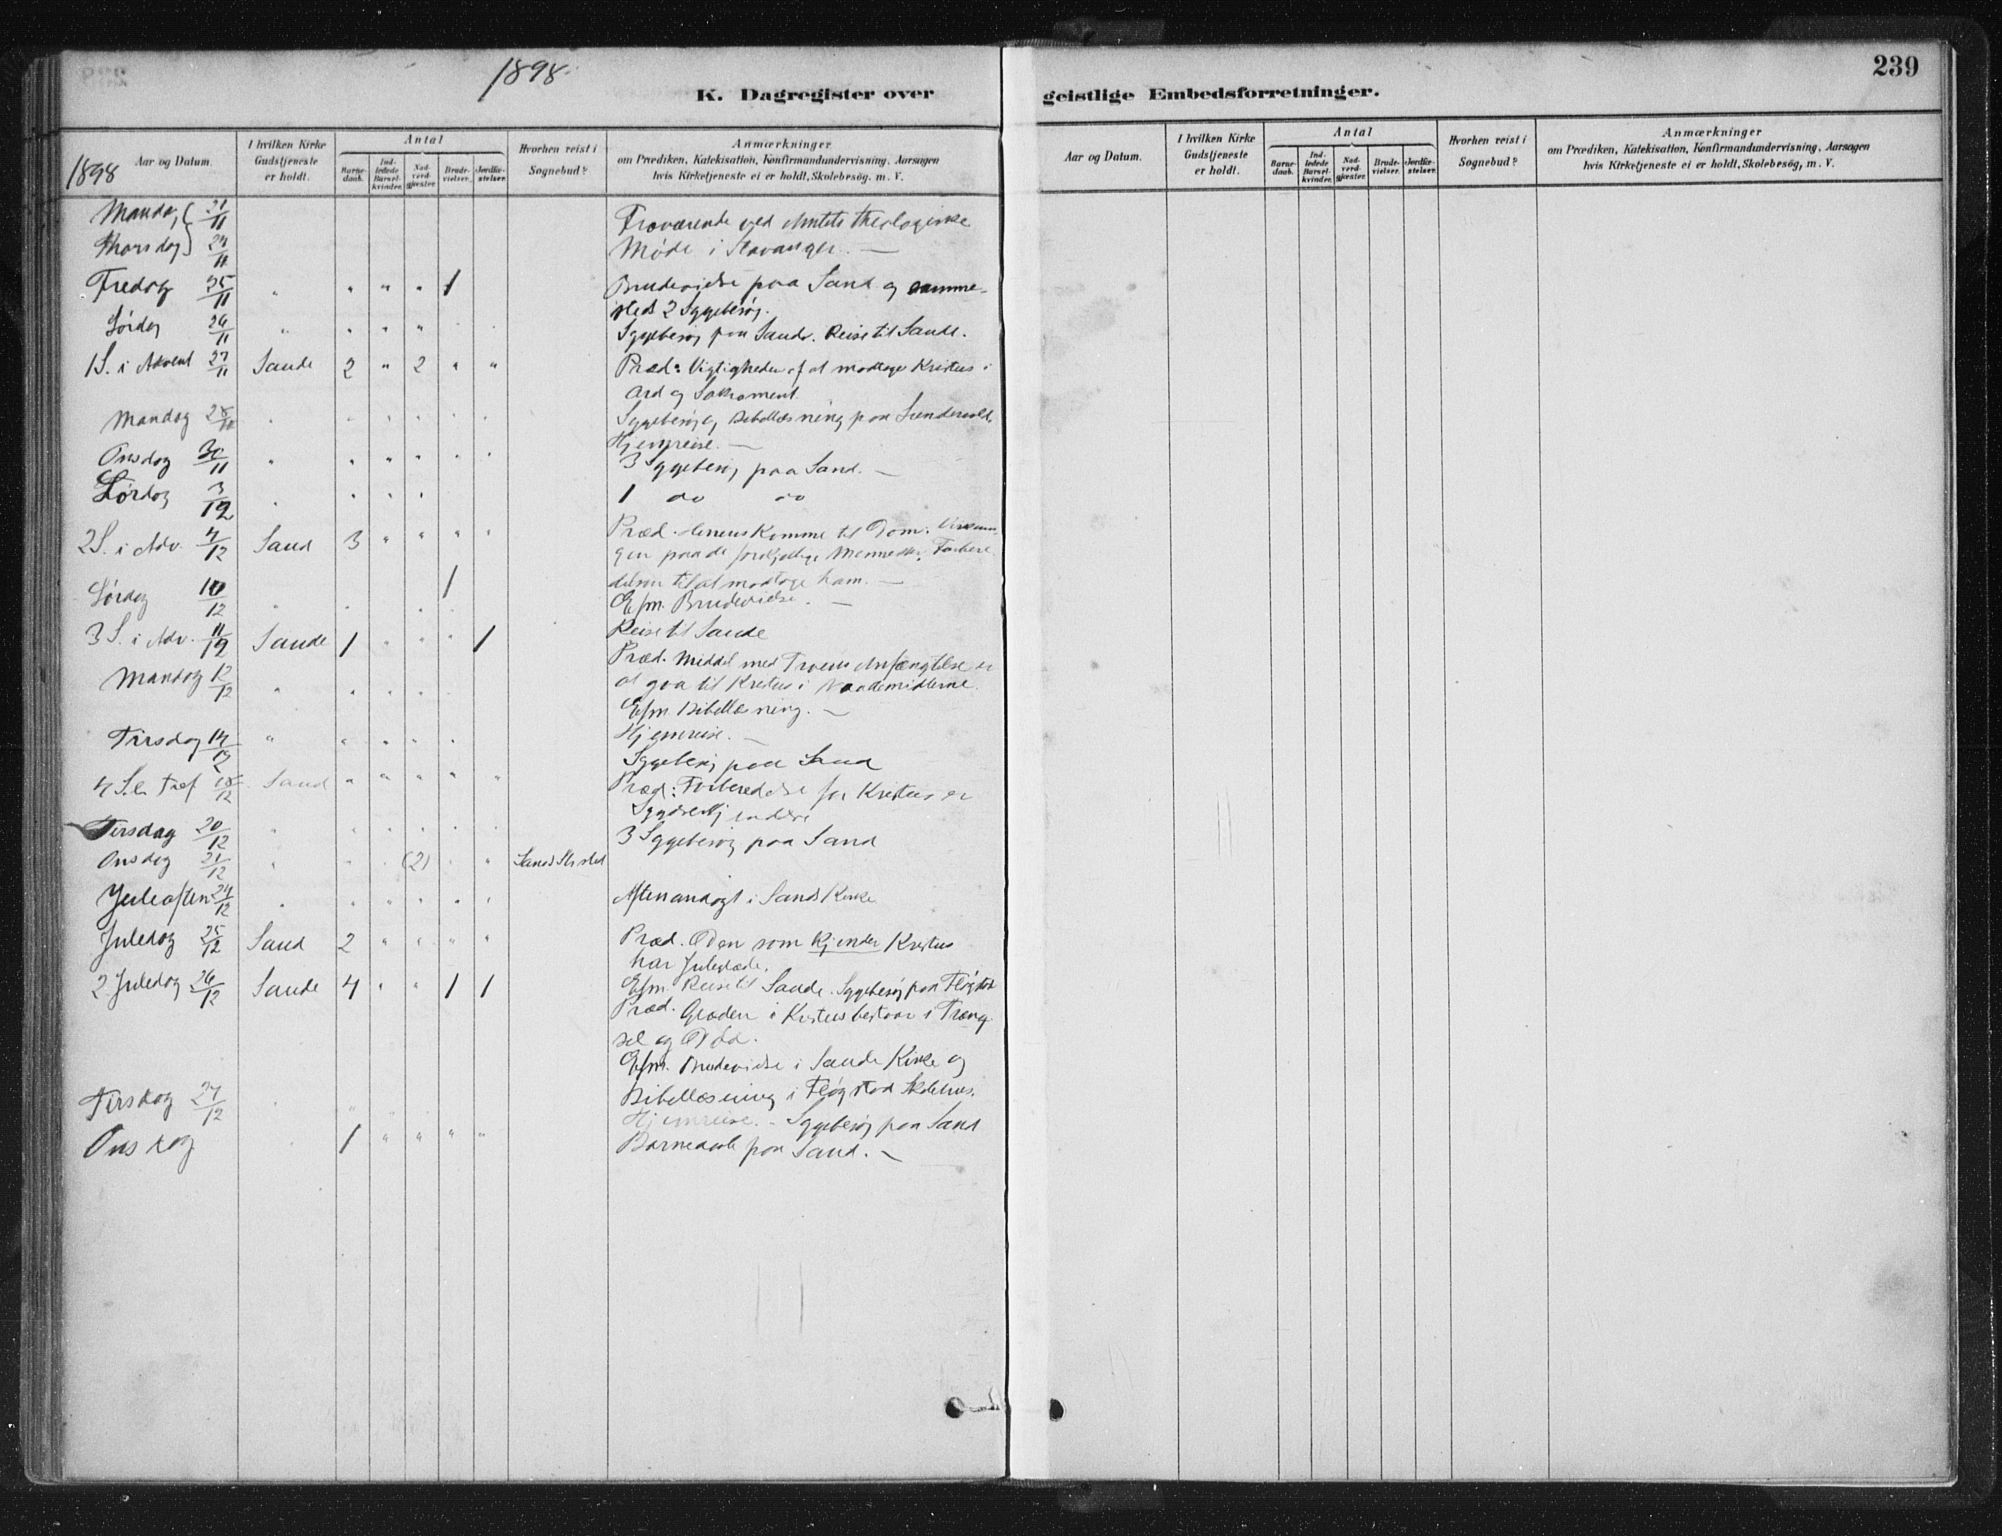 1898
239
K. Dagregister over
geistlige Embedsforretninger.
1898
Aar og Datum.
I hvilken Kirke Gudstjeneste er holdt.
Antal
Barne-daab.
Ind-ledede Barsel-kvinder.
Nad-verd-gjester.
Brude-vielser.
Jordfæ-stelser.
Hvorhen reist i Sognebud?
Anmærkninger
om Prædiken, Katekisation, Konfirmandundervisning, Aarsagen
hvis Kirketjeneste ei er holdt, Skolebesøg. m. V.
Aar og Datum.
I hvilken Kirke Gudstjeneste er holdt.
Antal
Barne-daab.
Ind-ledede Barsel-kvinder.
Nad-verd-gjester.
Brude-vielser.
Jordfæ-stelser.
Hvorhen reist i Sognebud?
Anmærkninger
om Prædiken, Katekisation, Konfirmandundervisning, Aarsagen
hvis Kirketjeneste ei er holdt, Skolebesög, m. V.
Mandag 21/11 Fraværende ved Amtets theologiske
Thorsdag 24/11 Møde i Stavanger. —
Fredag 25/11 " " " " 1 Brudevielse paa Sand og samme-
steds 2 Sygebesøg.
Lørdag 26/11 " " " " Sygebesøg paa Sand. Reise til Sande.
1 S. i Advent 27/11 Sande 2 " 2 " " Præd: Vigtigheden af at modtage Kristus i
Ord og Sakrament.
Mandag 28/11 Sygebesøg, Bibellæsning paa
Hjemreise. —
Onsdag 30/11 " " " " " " 3 Sygebesøg paa Sand. —
Lørdag 3/12 " " " " 1 do do
2 S. i Adv. 4/12 Sand 3 " " " " Præd. Herrens Komme til Dom.
gen paa de forskjellige Mennesker. Forbere-
delsen til at modtage ham. —
Lørdag 10/12 " " " 1 Efm. Brudevielse. —
Reise til Sande
3 S. i Adv. 11/12 Sande 1 " " " 1 Præd. Middel mod Troens Anfægtelse er
at gaa til Kristus i Naademidlerne.
Efm. Bibellæsning. —
Mandag 12/12 " " " " Hjemreise. —
Tirsdag 14/12 " " " " " Sygebesøg paa Sand
4 S. i 18/12 Sand " " " " " Præd: Forberedelse for Kristus er
Syndserkjendelse
Tirsdag 20/12 " " " " " 3 Sygebesøg paa Sand
Onsdag 21/12 " " " (2) " " Sands
Juleaften 24/12 " " " " " " Aftenandagt i Sands Kirke
Juledag 25/12 Sand 2 " " " " Præd. Den som kjender Kristus
har Juleglæde.
Efm. Reise til Sande. Sygebesøg paa Fløgstad
2 Juledag 26/12 Sande 4 " " 1 1 Præd. Glæden i Kristus bestaar i Træng-
sel og Død.
Efm. Brudevielse i Sande Kirke og
Bibellæsning i Fløgstad Skolehus.
Tirsdag 27/12 Hjemreise. - Sygebesøg paa Sand
Onsdag 1 " " " " Barnedaab paa Sand. —